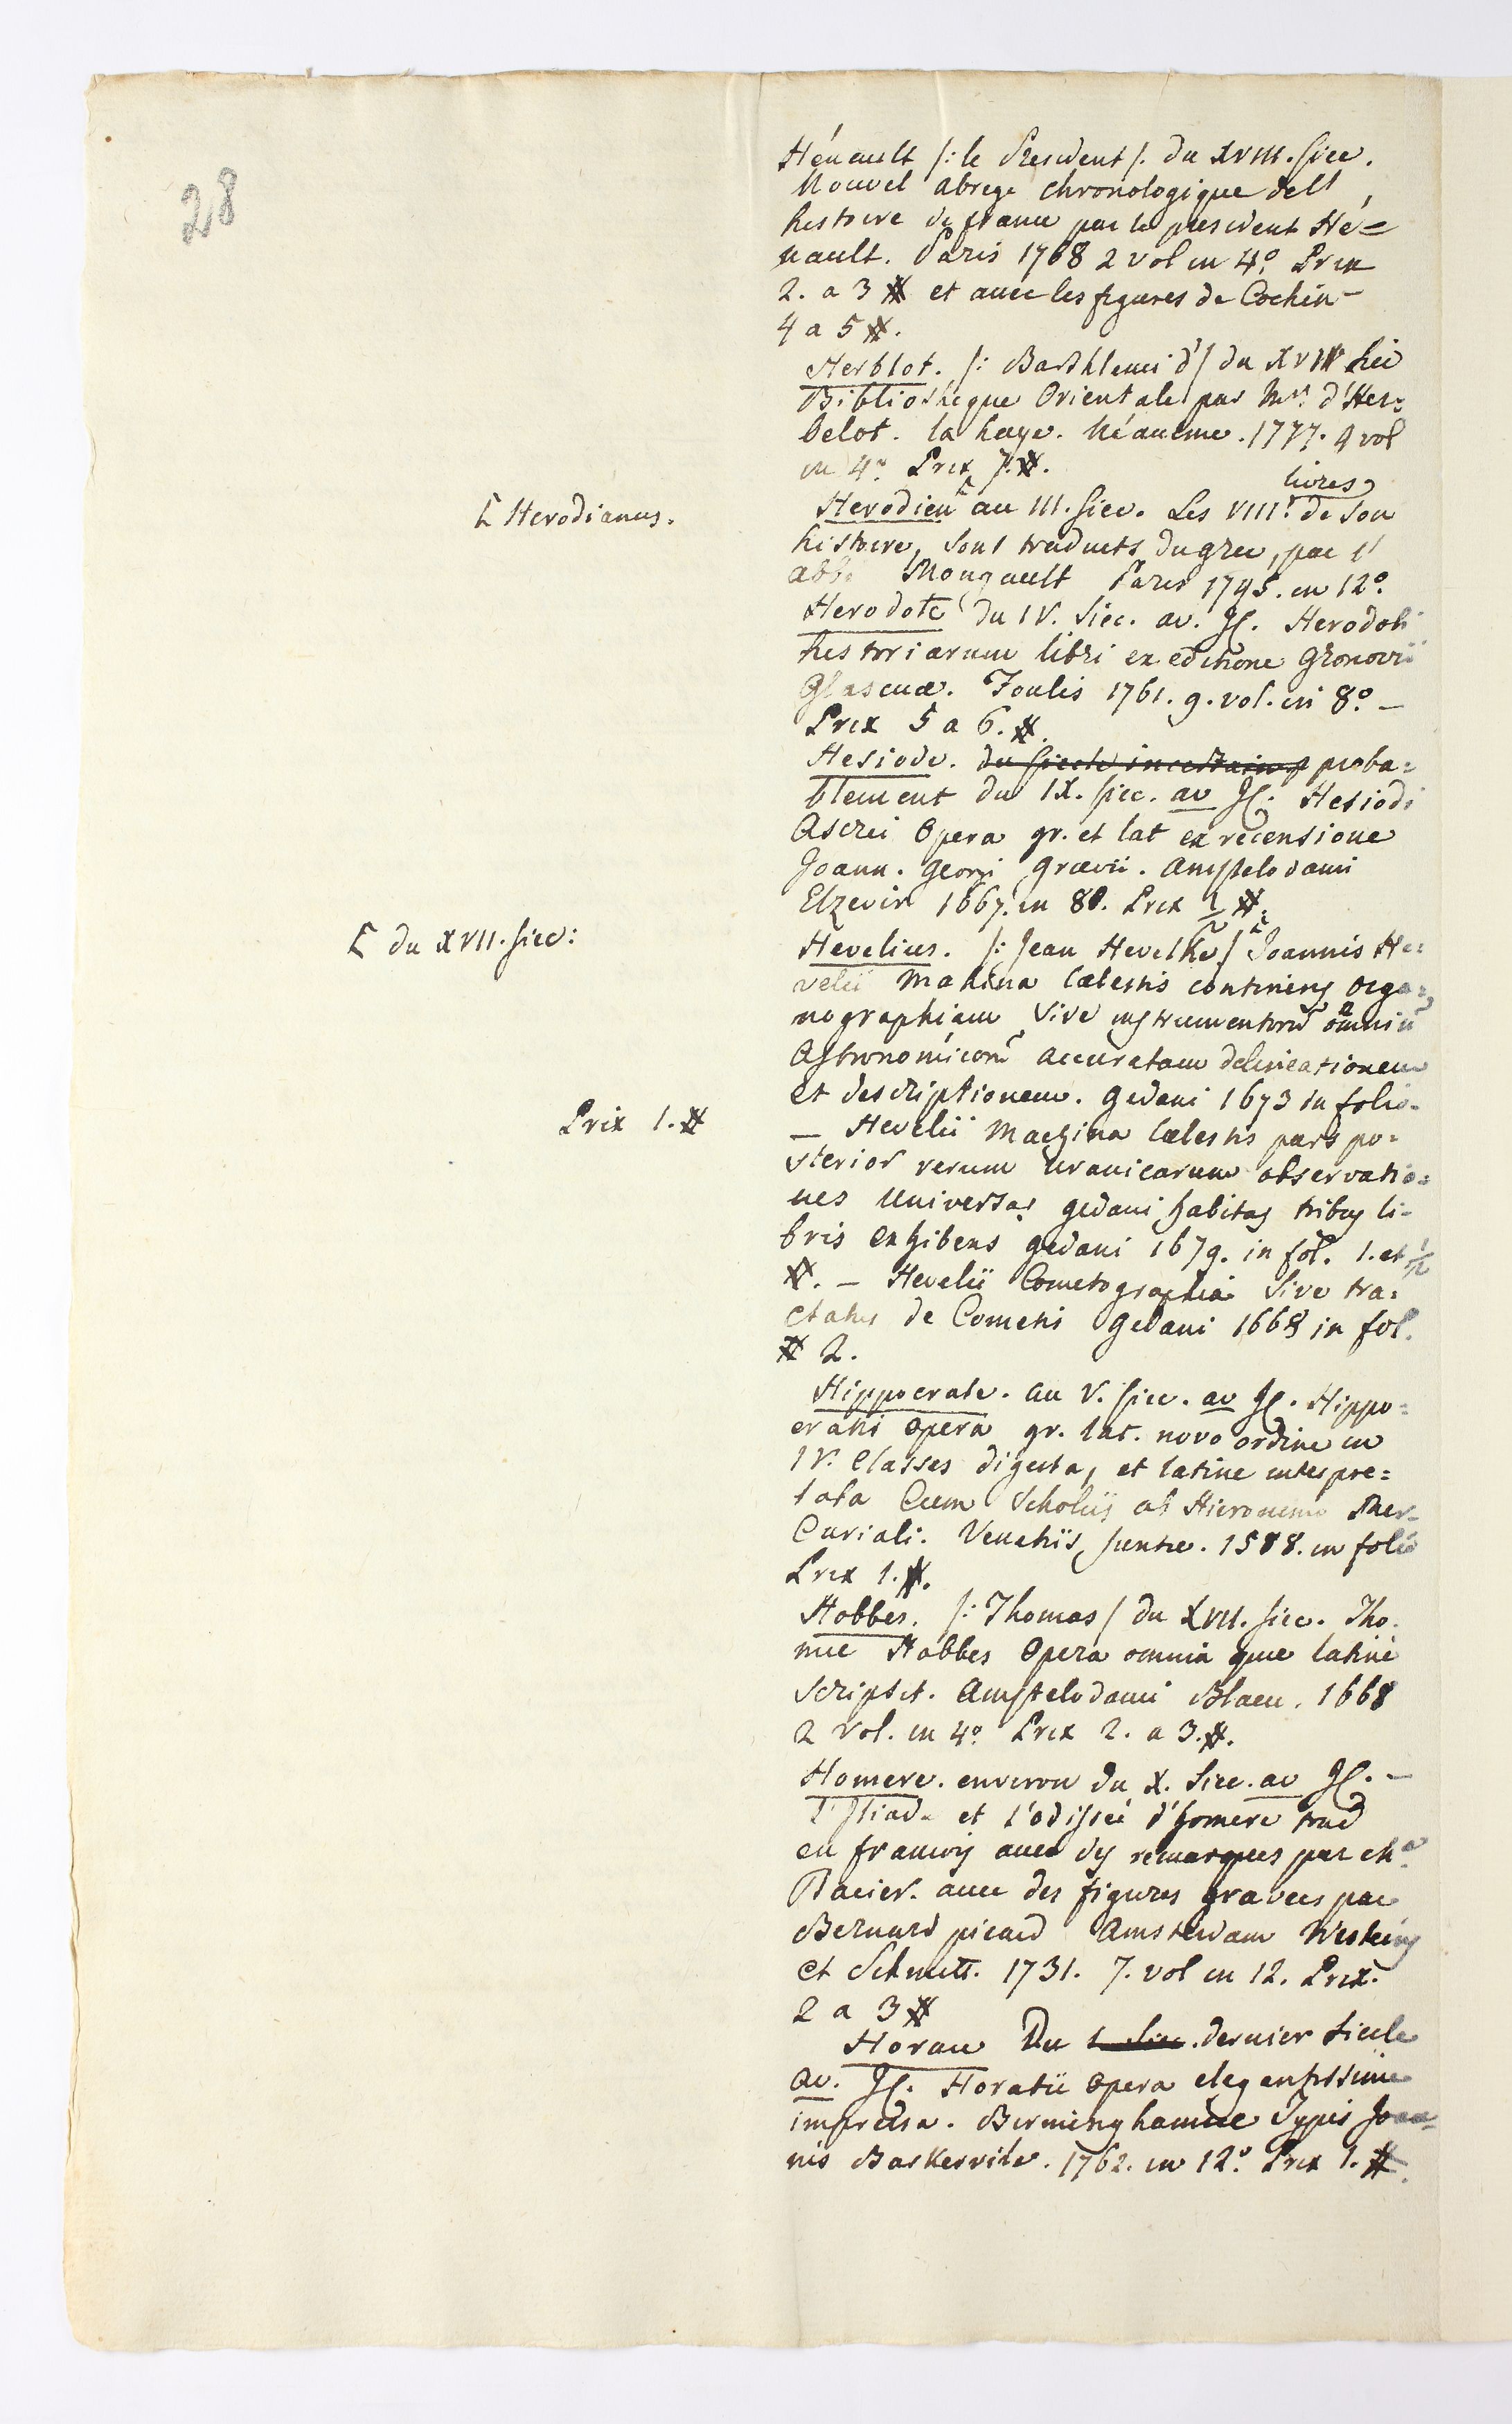 28
Hénault /: le President /. du XVIII. siec.
Nouvel abrege chronologique de l'
histoire de france par le president Hé=
nault. Paris 1768 2 vol in 4º. Prix
2. a 3 # et avec les figures de Cochin -
4 a 5 #.
Herblot. /: Barthlemi d'/ du XVII siec
Bibliotheque Orientale par Mr. d'Her=
belot. la haye. Néaulme. 1777. 4 vol
in 4º. Prix 7. #.
livres
⌈ Herodianus.
Herodien ⌈ au III. siec. Les VIII. de son
histoire, sont traduits du grec, par l'
abbé Mongault Paris 1745. in 12º.
Herodote du IV. siec. av. JC. Herodoti
historiarum libri ex editione Gronovii
Glascuæ. Foulis 1761. 9. vol. in 8º. -
Prix 5 a 6. #.
Hesiode. du siecle incertain proba=
blement du IX. siec. av JC. Hesiodi
Ascrei Opera gr. et lat ex recensione
Joann. Georgi Grævii. Amstelodami
Elzevir 1667. in 8º. Prix 1/2 #.
⌈ du XVII. siec:
Hevelius. /: Jean Hevelke / ⌈ Joannis He=
velii Mahina Cælestis continens orga=
nographiam sive instrumentorũ omniũ
Astronomicorũ accuratam delineationem
et descriptionem. Gedani 1673 in folio.
Prix 1. #
— Hevelii Machina Cælestis pars po=
sterior rerum uranicarum observatio=
nes universas Gedani habitas tribus li=
bris exhibens Gedani 1679. in fol. 1. et 1/2
#. - Hevelii Cometographia sive tra=
ctatus de Cometis Gedani 1668 in fol.
# 2.
Hippocrate. au V. siec. av JC. Hippo=
cratis opera gr. lat. novo ordine in
IV. Classes digesta, et latine interpre=
tata Cum Scholiis ab Hieronimo Mer=
Curiali. Venetiis, Juntæ. 1588. in folio
Prix 1. #.
Hobbes. /: Thomas / du XVII. siec. Tho.
mæ Hobbes Opera omnia quæ latine
scripsit. Amstelodami Blaeu. 1668
2 vol. in 4º Prix 2. a 3. #.
Homere. environ du X. siec. av JC. -
l'Iliade et l'odissée d'homere trad
en francois avec des remarques par Me.
Dacier. avec des figures gravees par
Bernard picard Amsterdam Westeing
et Schmitt. 1731. 7. vol in 12. Prix.
2 a 3 #
Horace Du 1 siec. dernier siecle
av. JC. Horatii opera elegantissime
impressa. Birminghamiæ Typis Joan=
nis Baskervile. 1762. in 12º. Prix 1. #.